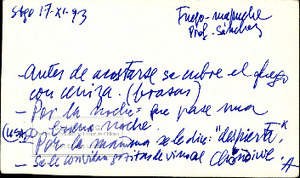 Stgo 17-XI-93
Fuego-mapuche
Prof. Sánchez
- Antes de acostarse se cubre el fuego
con ceniza. (brasas)
- Por la noche: que pase una
buena noche.
- Por la mañana se le dice: "despierta"
- Se le convidan gotitas de vino al